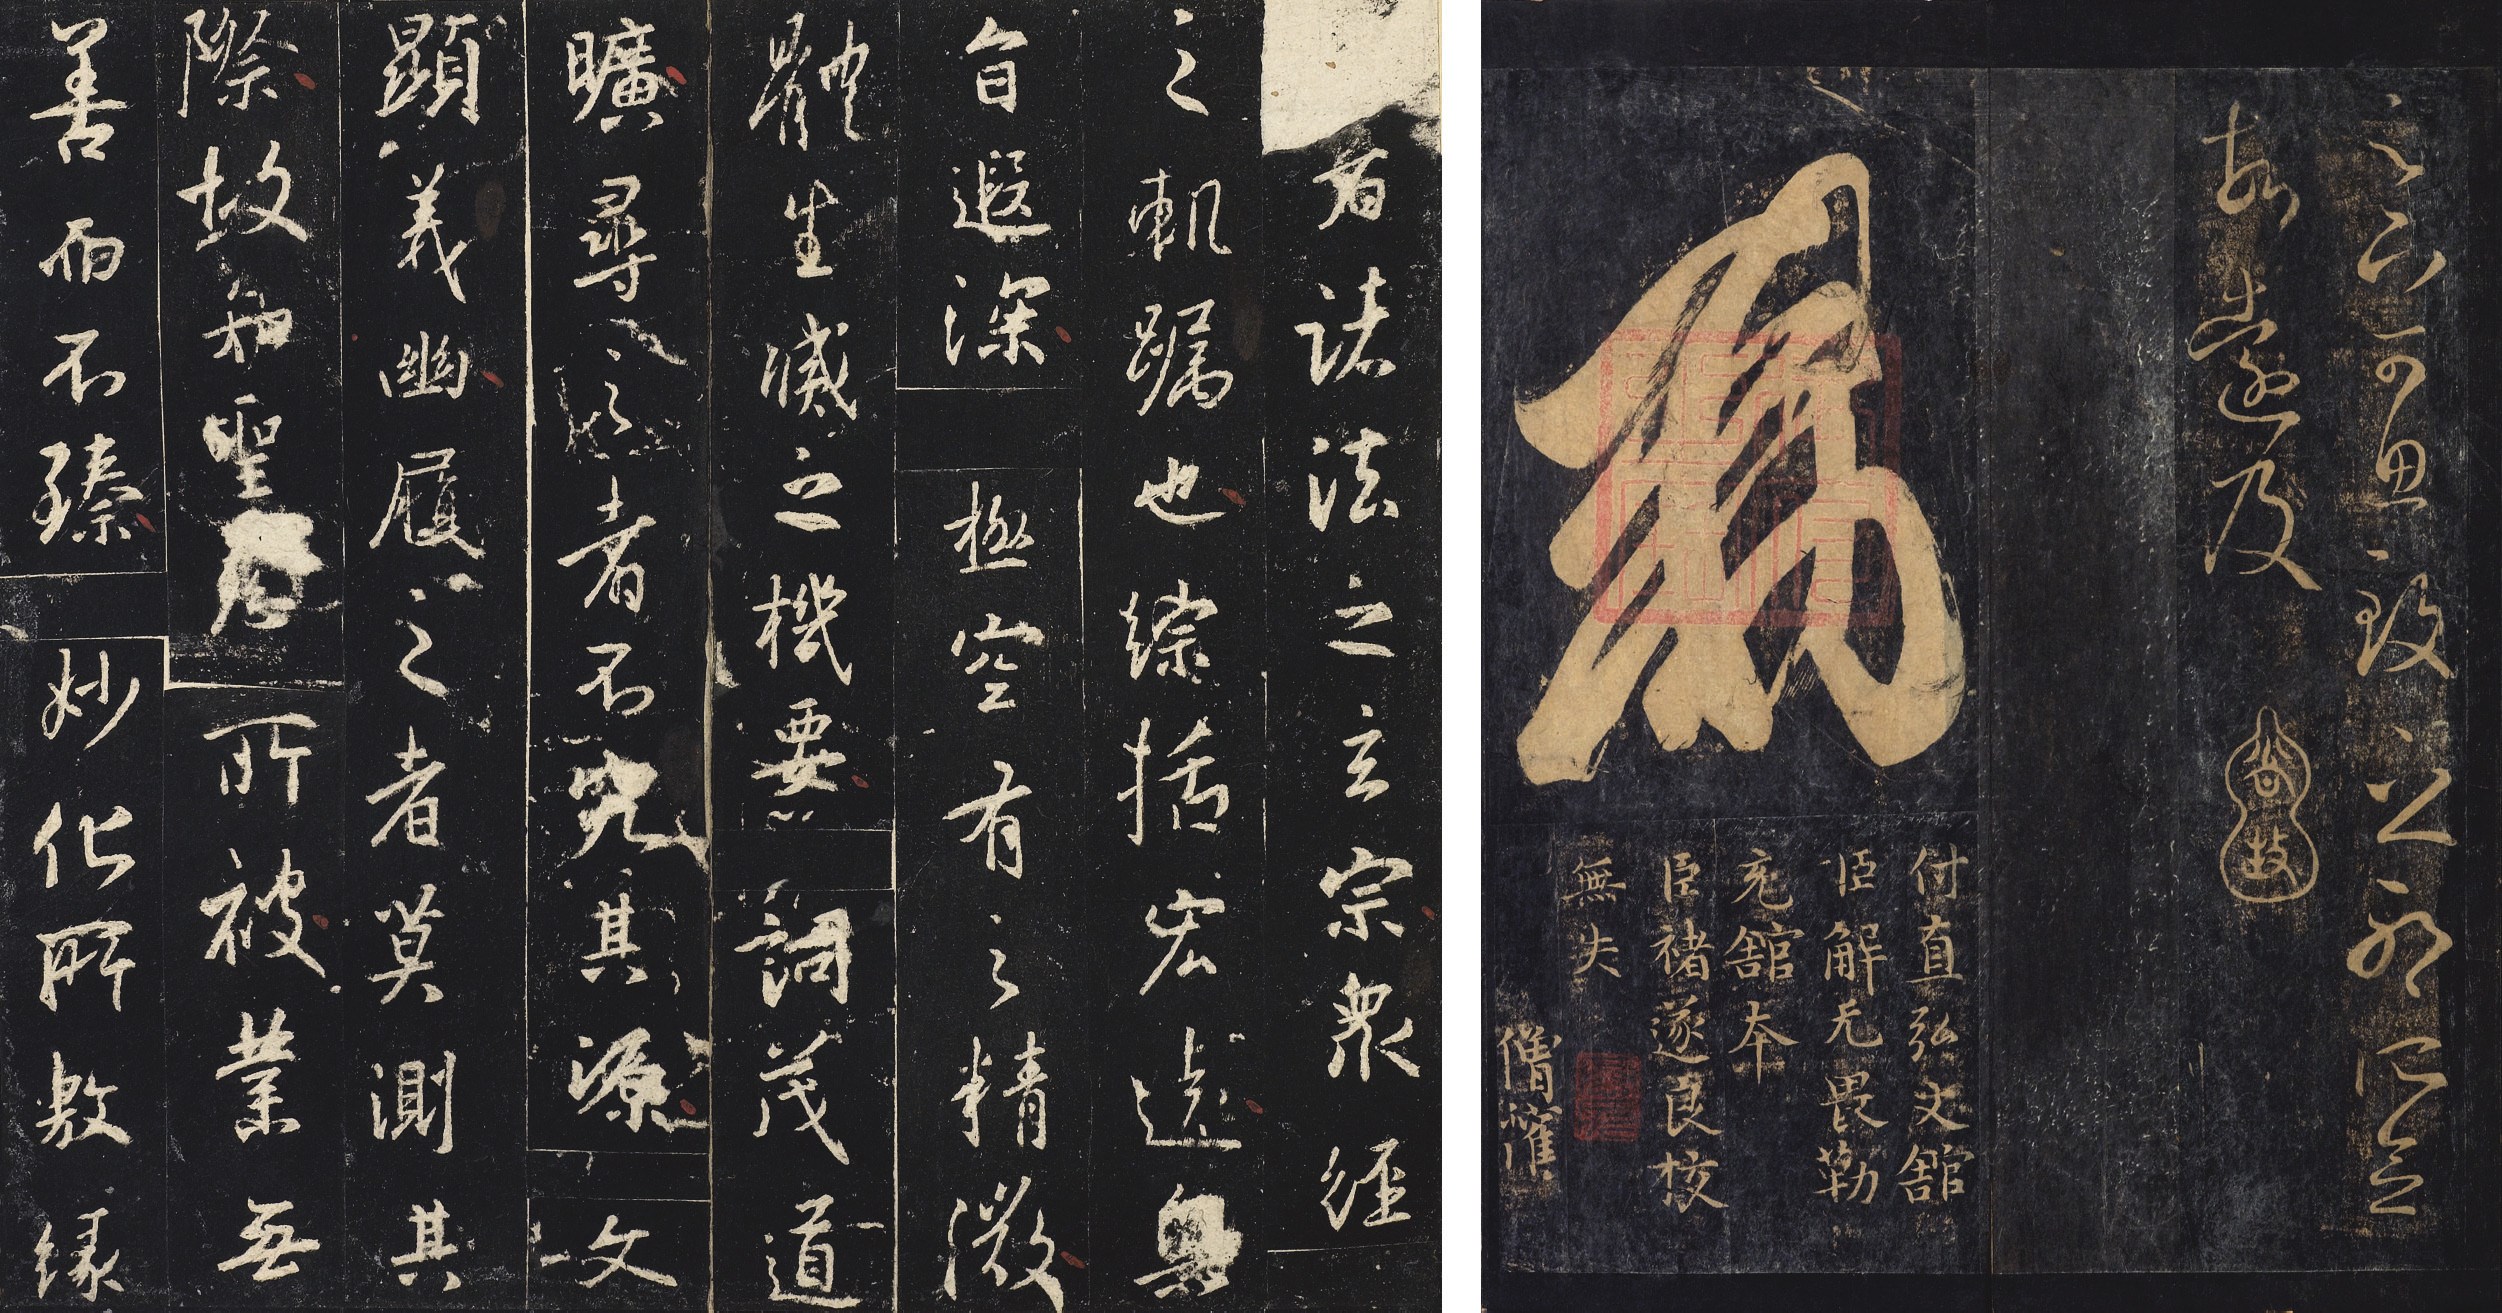 者諸法之玄宗衆經
之軌躅也綜括宏遠奧
旨遐深極空有之精微
體生滅之機要詞茂道
曠尋之者不究其源文
顯義幽履之者莫測其
際故知聖慈所被業無
善而不臻妙化所敷緣
足下可思致之耶所念
故遠及
敕
付直弘文館
臣解无畏勒
充館本
臣褚遂良校
無失
僧權